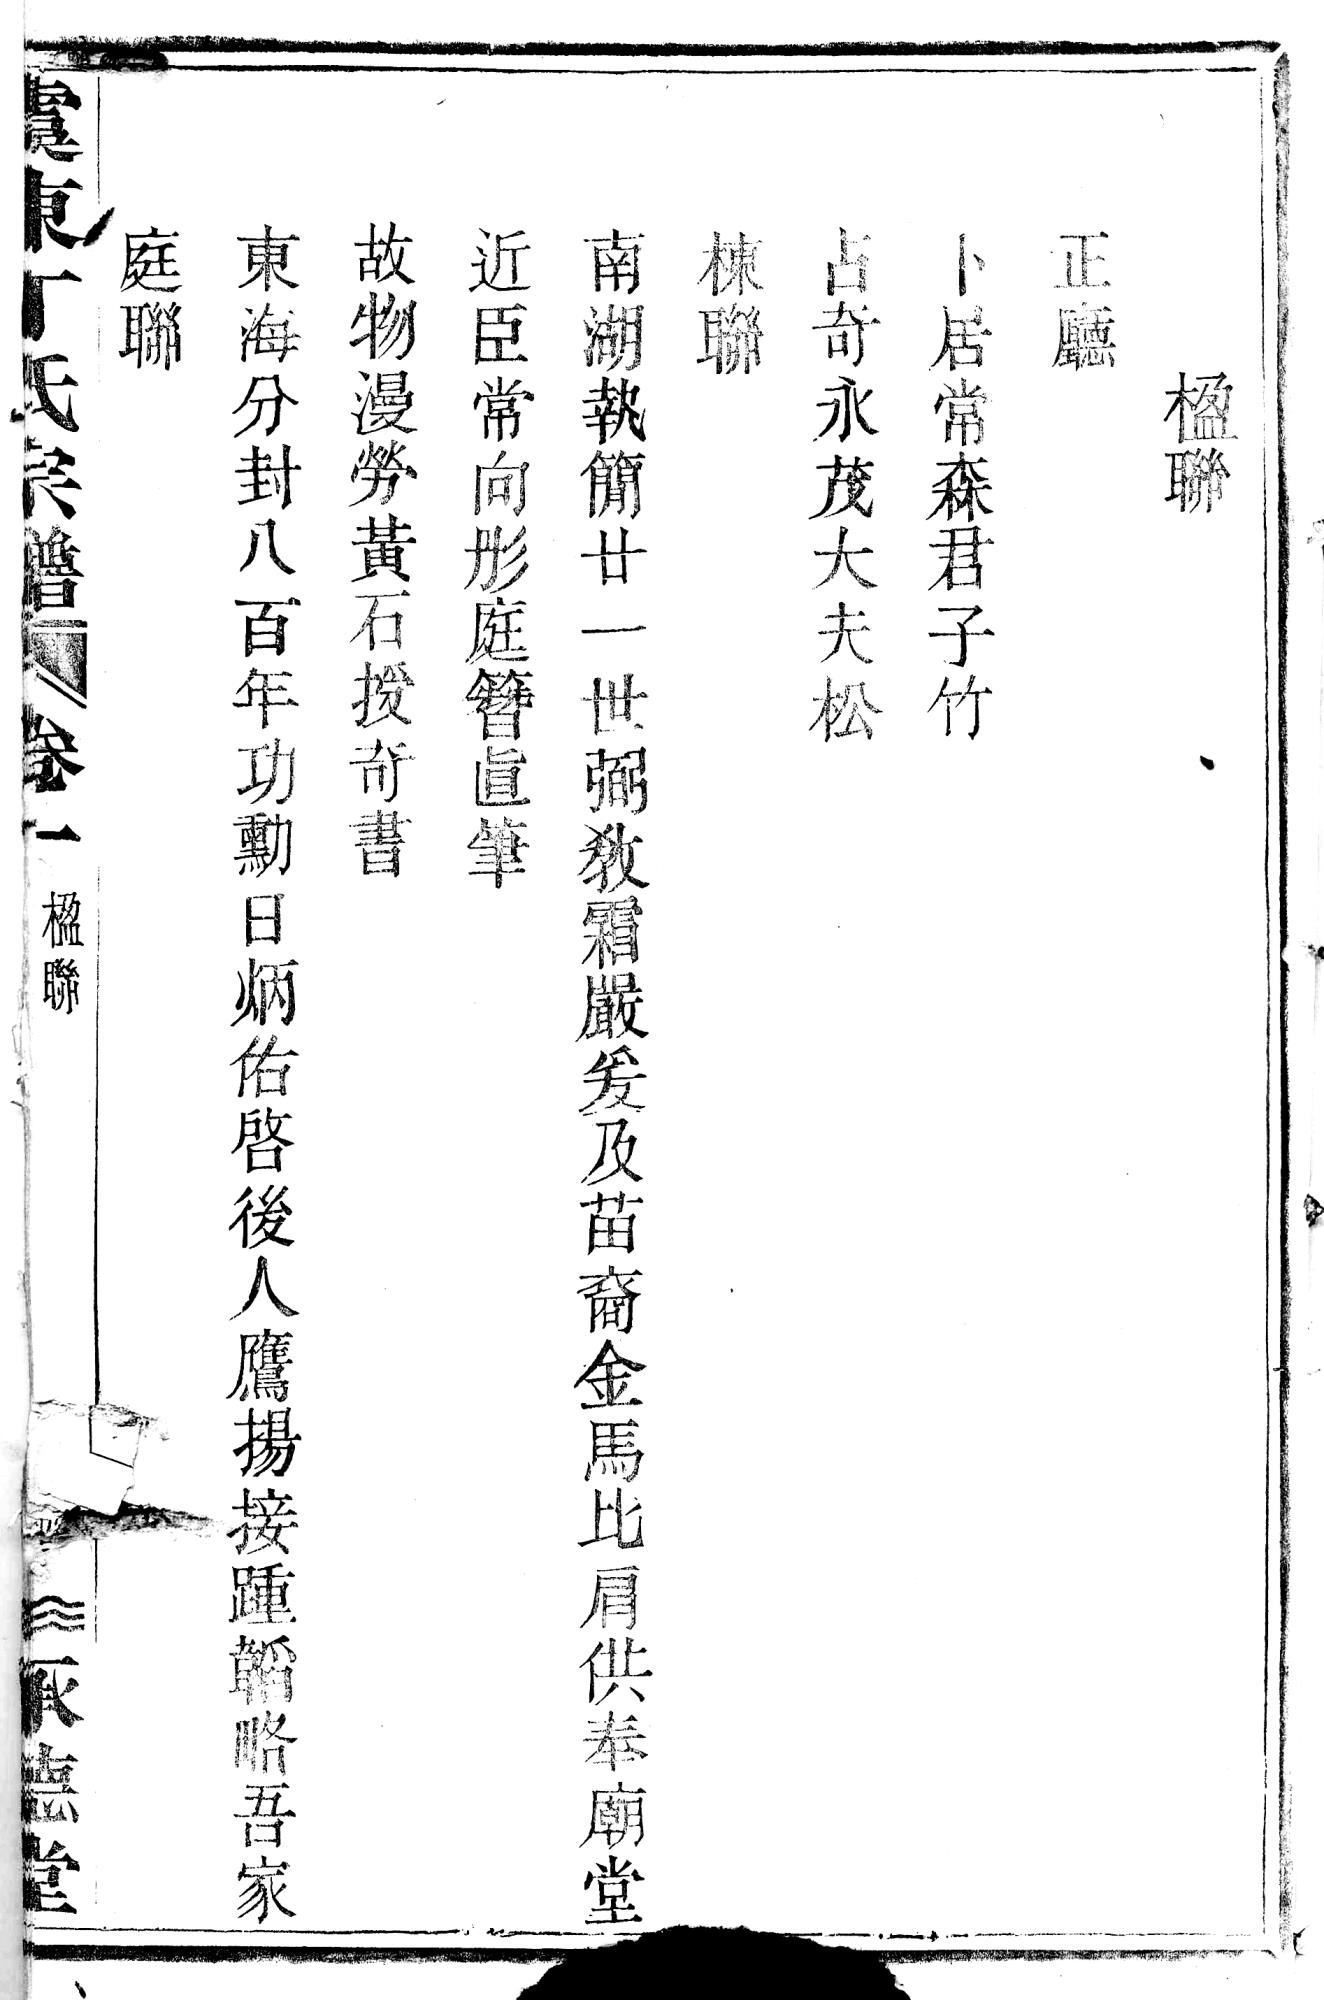 楹聯
正廳
卜居常森君子竹
占奇永茂大夫松
棟聯
南湖執簡廿一世弼敎霜嚴爰及苗裔金馬比肩供奉廟堂
近臣常向彤庭簪直筆
故物漫勞黃石授奇書
東海分封八百年功勳日炳佑啓後人鷹揚接踵韜略吾家
庭聯
虞東丁氏宗譜
卷一
楹聯
承德堂